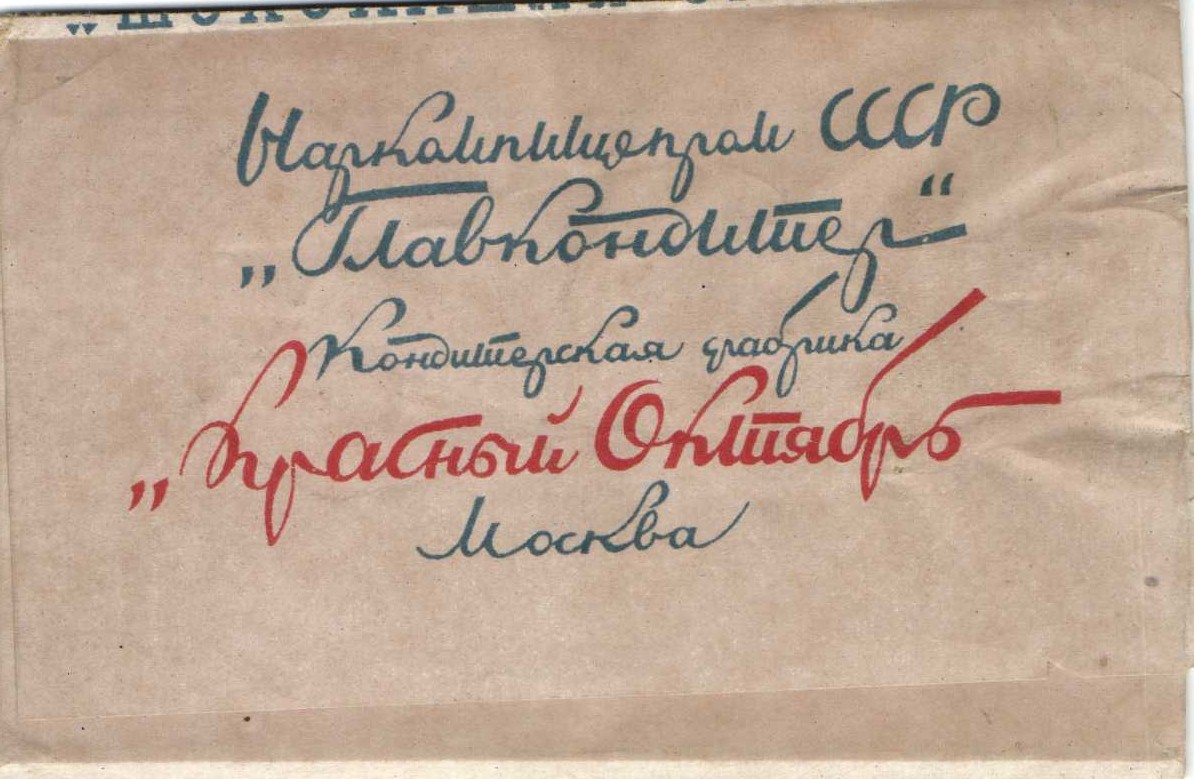 Наркомпищепром СССР
„Главкондитер“
Кондитерская фабрика
„Красный Октябрь
Москва